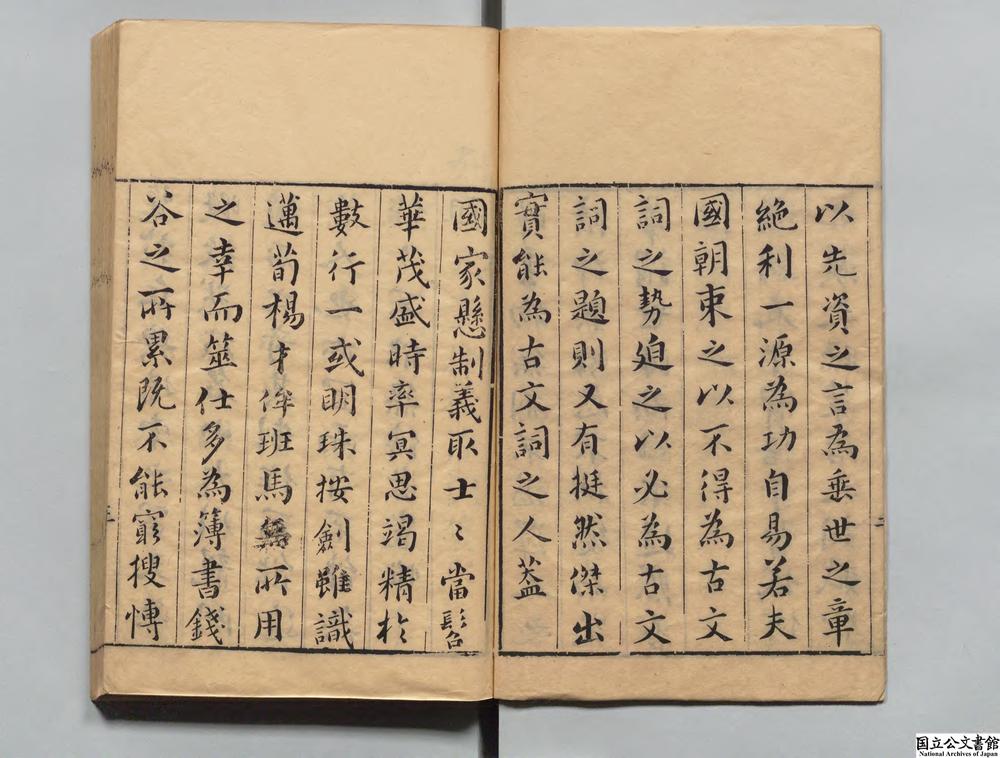 以先資之言為垂世之章
絶利一源為功自易若夫
國朝束之以不得為古文
詞之勢廹之以必為古文
詞之題則又有挺然傑出
實能為古文詞之人葢
國家懸制義取士〻當髫
華茂盛時率冥思竭精於
數行一或明珠按劍雖識
邁荀楊才侔班馬無所用
之幸而筮仕多為簿書錢
谷之所累既不能窮搜愽
二
三
国立公文書館
National Archives of Japan